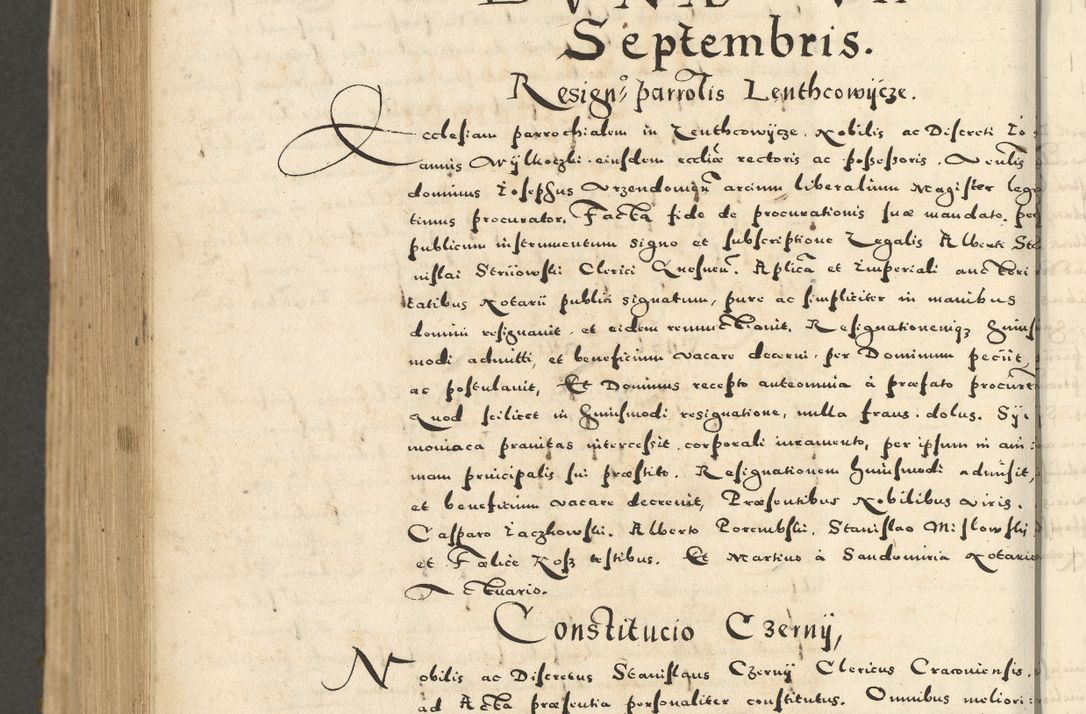 Septembris.
Resign: parrolis Lenthcowycze.
Ecclesiam parrochialem in Lenthcowycze. Nobilis ac Discreti Io
annis Wylkoczki eiusdem eccliæ rectoris ac possessoris. Venlis
dominus Iosephus artium liberalium Magister legi
timus procurator, Facta fide de procurationis suæ mandato, per
publicum instrumentum signo et subscriptione Legalis Alberti Sta
nislai Striiowski Clerici Gnesnen. Aplica et Imperiali aucthori
tatibus Notarii publici signatum, pure ac simpliciter in manibus
domini resignavit et eidem renunctiavit. Resignationemqz huius
modi admitti, et beneficium vacare decerni per Dominum peciit
ac postulavit, Et Dominus recepto anteomnia à præfato procura
Quod scilicet in huiusmodi resignatione, nulla fraus. dolus. Sy:
moniaca pravitas intercessit. corporali iuramento, per ipsum in ani:
mam principalis sui præstito. Resignationem huiusmodi admisit,
et beneficium vacare decrevit, Præsentibus Nobilibus viris.
Casparo Iaczkowski. Alberto Porembski. Stanislao Mislowskij
et Fælice Kosz testibus. Et Martino à Sandomiria Notario
Actuario.
Constitucio Czernij,
Nobilis ac Discretus Stanislaus Czernij Clericus Cracoviensis.
ad Acta præsentia personaliter constitutus. Omnibus meliori: